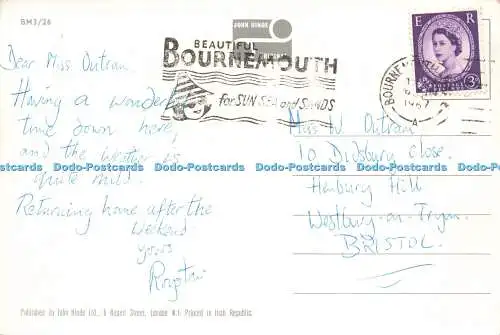 BM3/26
JOHN HINDE
BEAUTIFUL
BOURNEMOUTH
for SUN SEA and SANDS
E R
3D
BOURNEMOUTH
1967
A
Dear Miss Outram
Having a wonderful
time down here,
and the weather is
quite mild.
Returning home after the
weekend
yours
Miss W Outram
10 Didsbury Close.
Henbury Hill
Westbury-on-Trym.
BRISTOL.
Dodo-Postcards Dodo-Postcards Dodo-Postcards Dodo-Postcards Dodo-Postcards Dodo-Postcards
Published by John Hinde Ltd., 6 Regent Street, London W.1. Printed in Irish Republic.